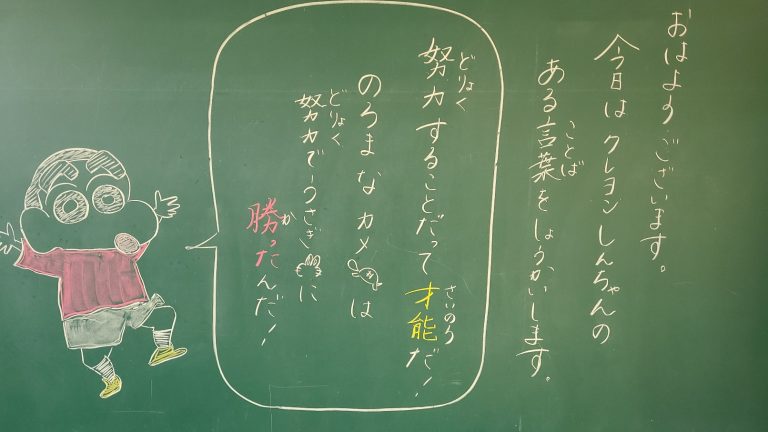 おはようございます。
今日はクレヨンしんちゃんの
ある言葉をしょうかいします。
ことば
努力することだって才能だ!
どりょく
さいのう
のろまなカメは
努力でうさぎに
どりょく
勝ったんだ!
か